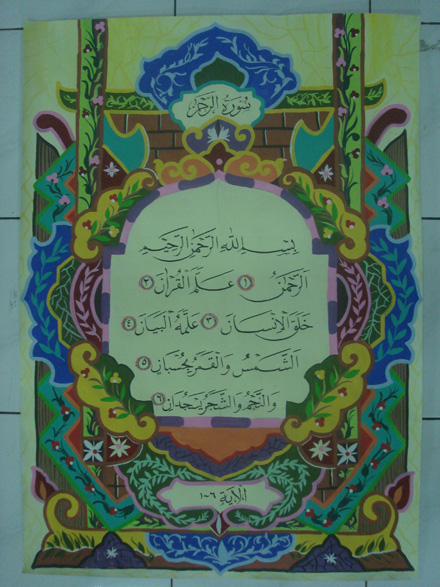 سورة الرحمن
بسم الله الرحمن الرحيم
الرحمن ١ علم القران ٢
خلق الانسان ٣ علمه البيان ٤
الشمس والقمر بحسبان ٥
والنجم والشجر يسجدان ٦
الاية ١-٦